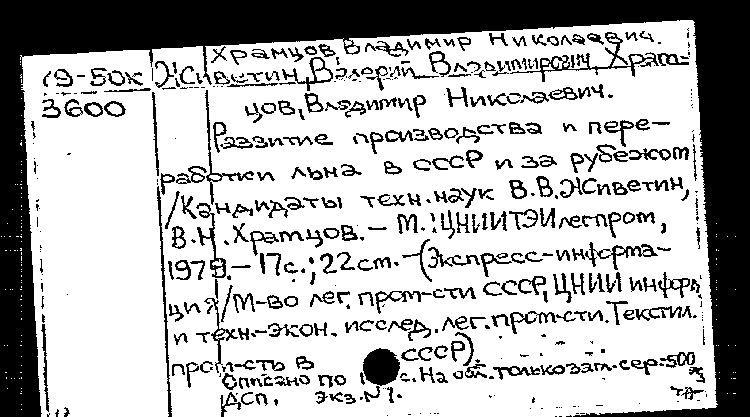 Храмцов, Владимир Николаевич.
79-50к Живетин, Валерий Владимирович, Храм-
3600 цов, Владимир Николаевич.
Развитие производства и пере-
работки льна в СССР и за рубежом
/Кандидаты техн. наук В.В. Живетин,
В.Н. Храмцов. - М.: ЦНИИТЭИлегпром,
1979. - 17с.; 22 см. - (Экспресс-информа-
ция / М-во лег. пром-сти СССР, ЦНИИ информ.
и техн.-экон. исслед. лег. пром-сти. Текстил.
пром-сть в СССР).
Описано по с. На обл. только загл. сер. 500
ДСП, экз. №1.